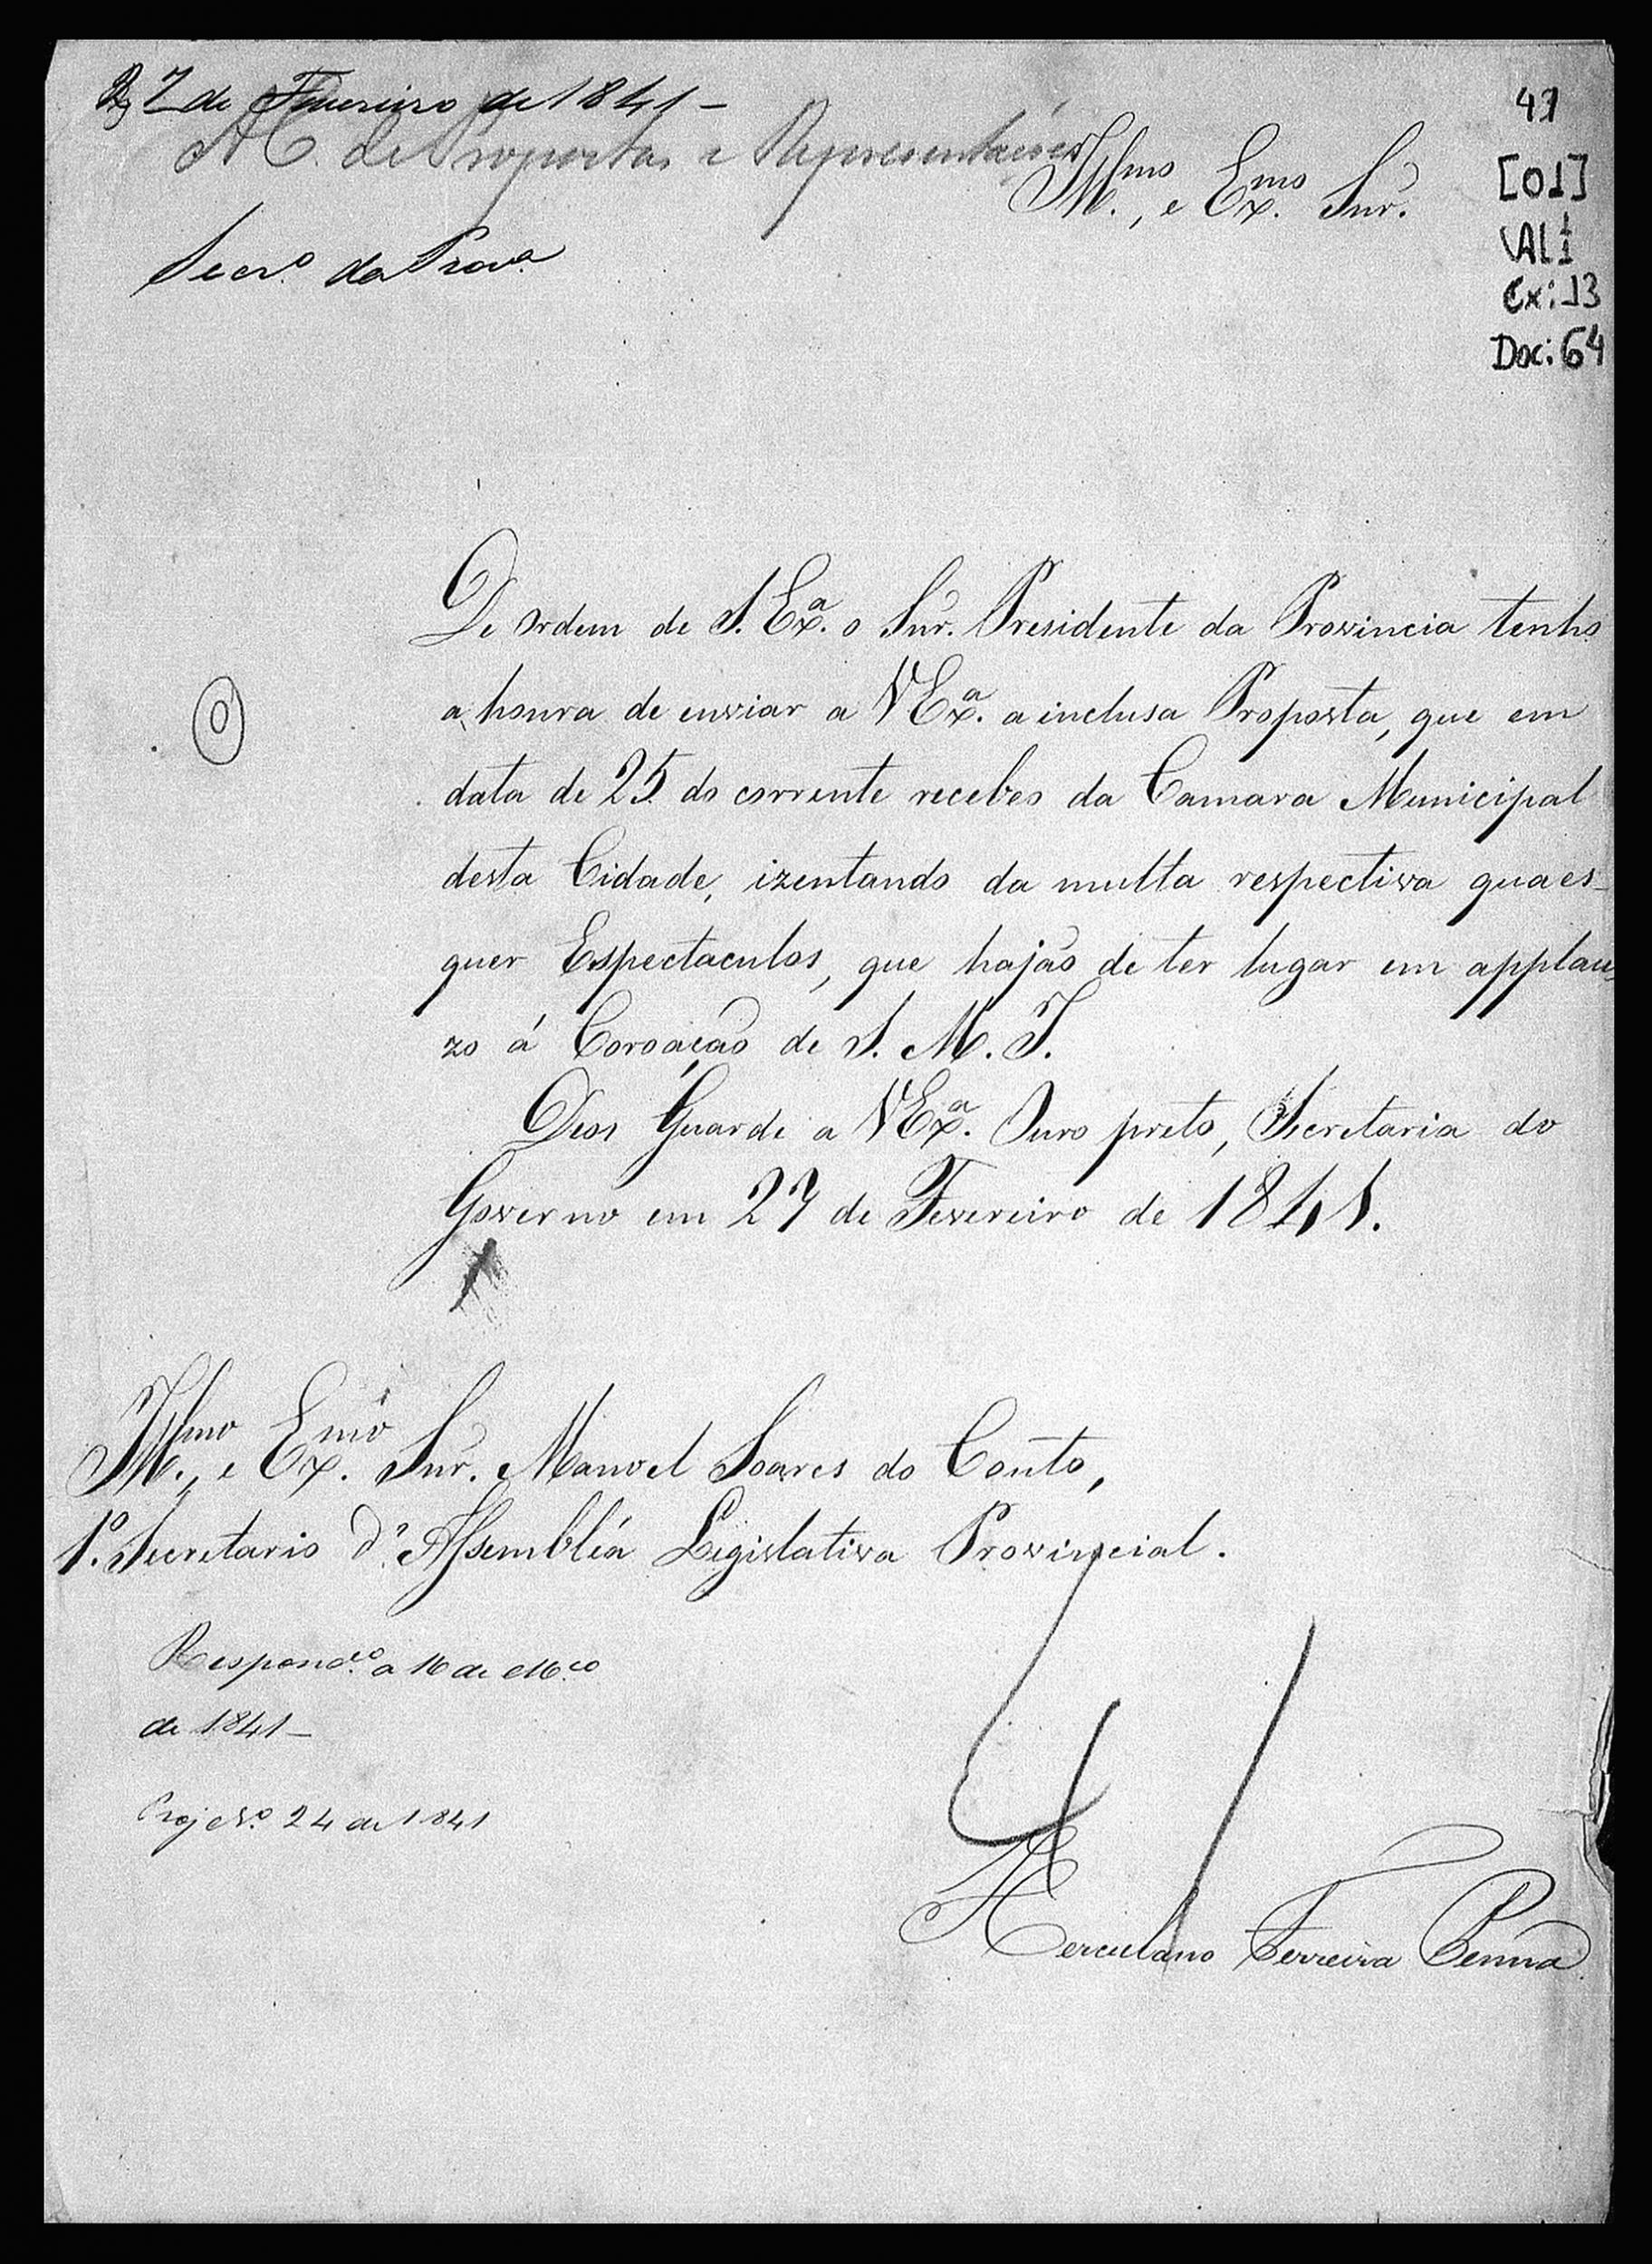 27 de Fevereiro de 1841 –
A' C. de Propostas e Representações
Secr.º da Prov.ª
Ill.mo, e Ex.mo Snr.
41
[01]
AL 1
Cx: 13
Doc: 64
De ordem de S. Ex.ª o Snr. Presidente da Provincia tenho
a honra de enviar a V Ex.ª a inclusa Proposta, que em
data de 25 do corrente recebeo da Camara Municipal
desta Cidade, izentando da multa respectiva quaes-
quer Espectaculos, que hajão de ter lugar em applau-
zo á Coroação de S. M. I.
Deos Guarde a V Ex.ª Ouro preto, Secretaria do
Governo em 27 de Fevereiro de 1841.
Ill.mo, e Ex.mo Snr. Manoel Soares do Couto,
1.º Secretario d'Assembléa Legislativa Provincial.
Respond.º a 16 de M.ço
de 1841 –
Proj N.º 24 de 1841
Herculano Ferreira Penna